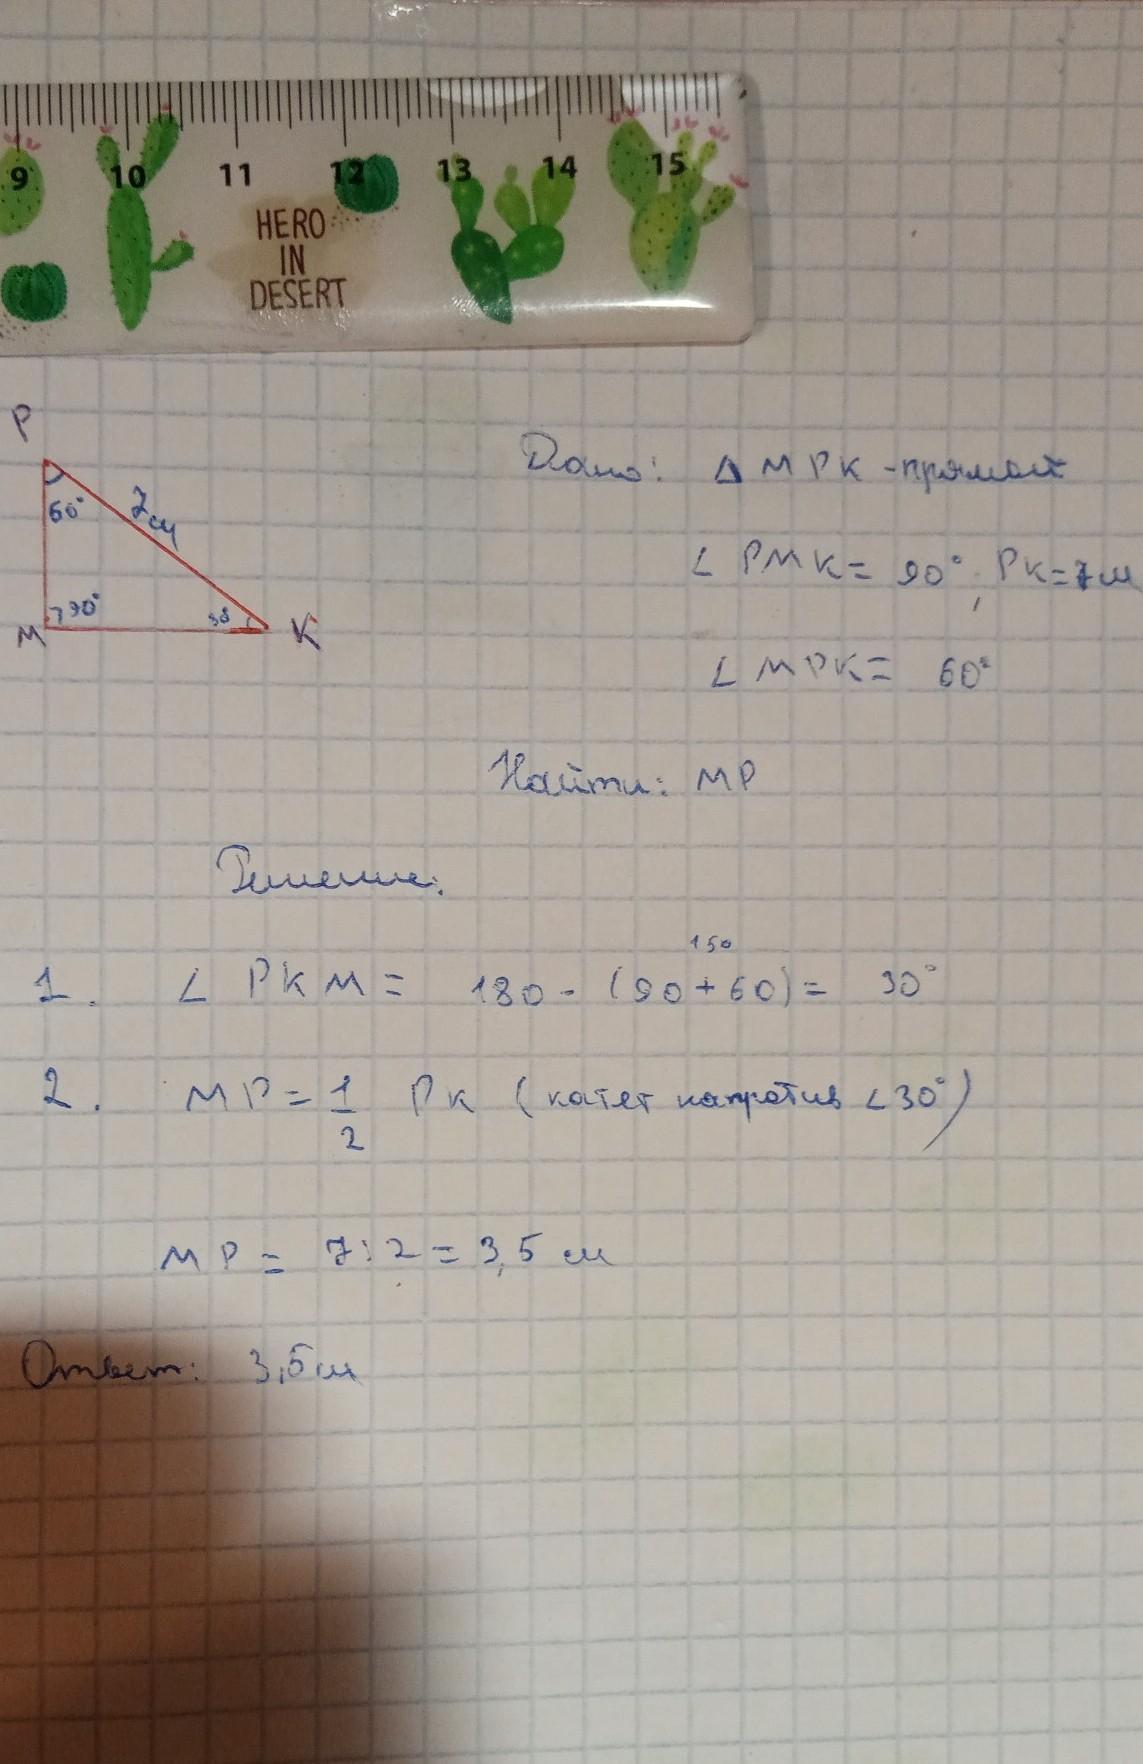 9 10 11 12 13 14 15
HERO
IN
DESERT
P
60°
7см
M
90°
30
K
Дано: Δ MPK - прямой
∠ PMK = 90°, PK = 7см
∠ MPK = 60°
Найти: MP
Решение:
150
1. ∠ PKM = 180 - (90 + 60) = 30°
2. MP = 1/2 PK (катет напротив ∠30°)
MP = 7:2 = 3,5 см
Ответ: 3,5см